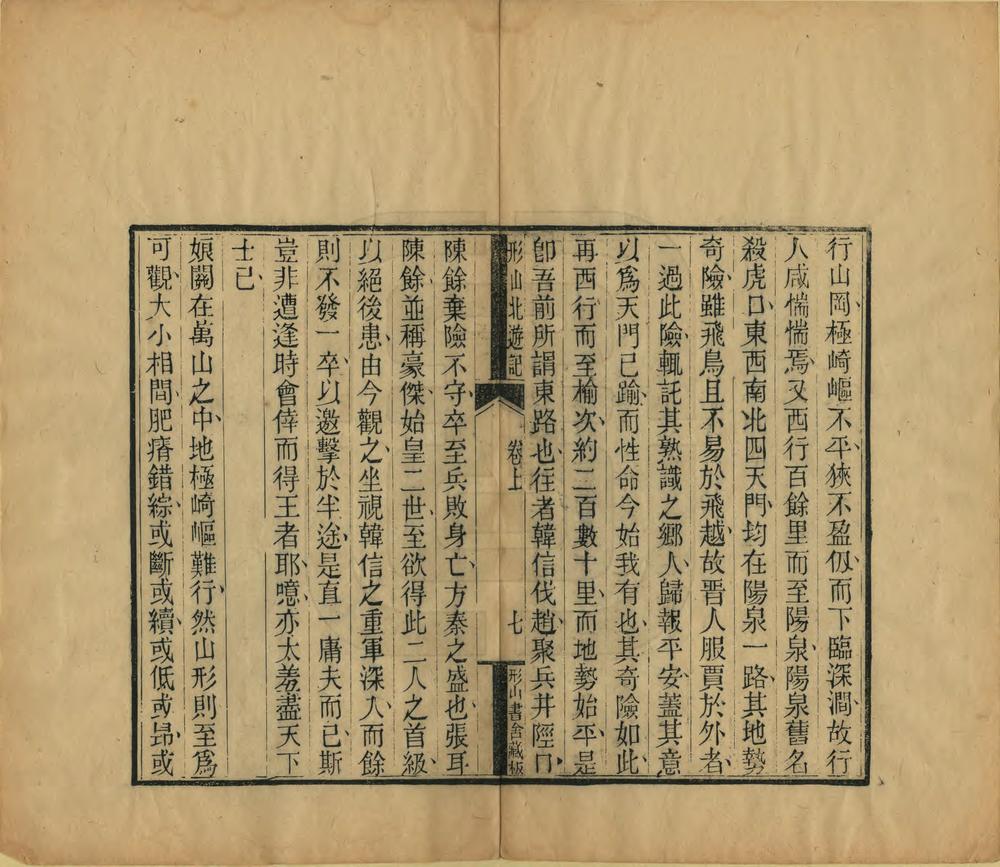 行山岡極崎嶇不平狹不盈仭而下臨深澗故行
人咸惴惴焉又西行百餘里而至陽泉陽泉舊名
殺虎口東西南北四天門均在陽泉一路其地勢
奇險雖飛鳥且不易於飛越故晋人服賈於外者
一過此險輒託其熟識之鄉人歸報平安蓋其意
以爲天門已踰而性命今始我有也其奇險如此
再西行而至榆次約二百數十里而地勢始平是
卽吾前所謂東路也往者韓信伐趙聚兵井陘口
形山北遊記 卷上 七 形山書舍藏板
陳餘棄險不守卒至兵敗身亡方秦之盛也張耳
陳餘並稱豪傑始皇二世至欲得此二人之首級
以絕後患由今觀之坐視韓信之重軍深入而餘
則不發一卒以邀擊於半途是直一庸夫而已斯
豈非遭逢時會倖而得王者耶噫亦太羞盡天下
士已
娘關在萬山之中地極崎嶇難行然山形則至爲
可觀大小相間肥瘠錯綜或斷或續或低或昻或